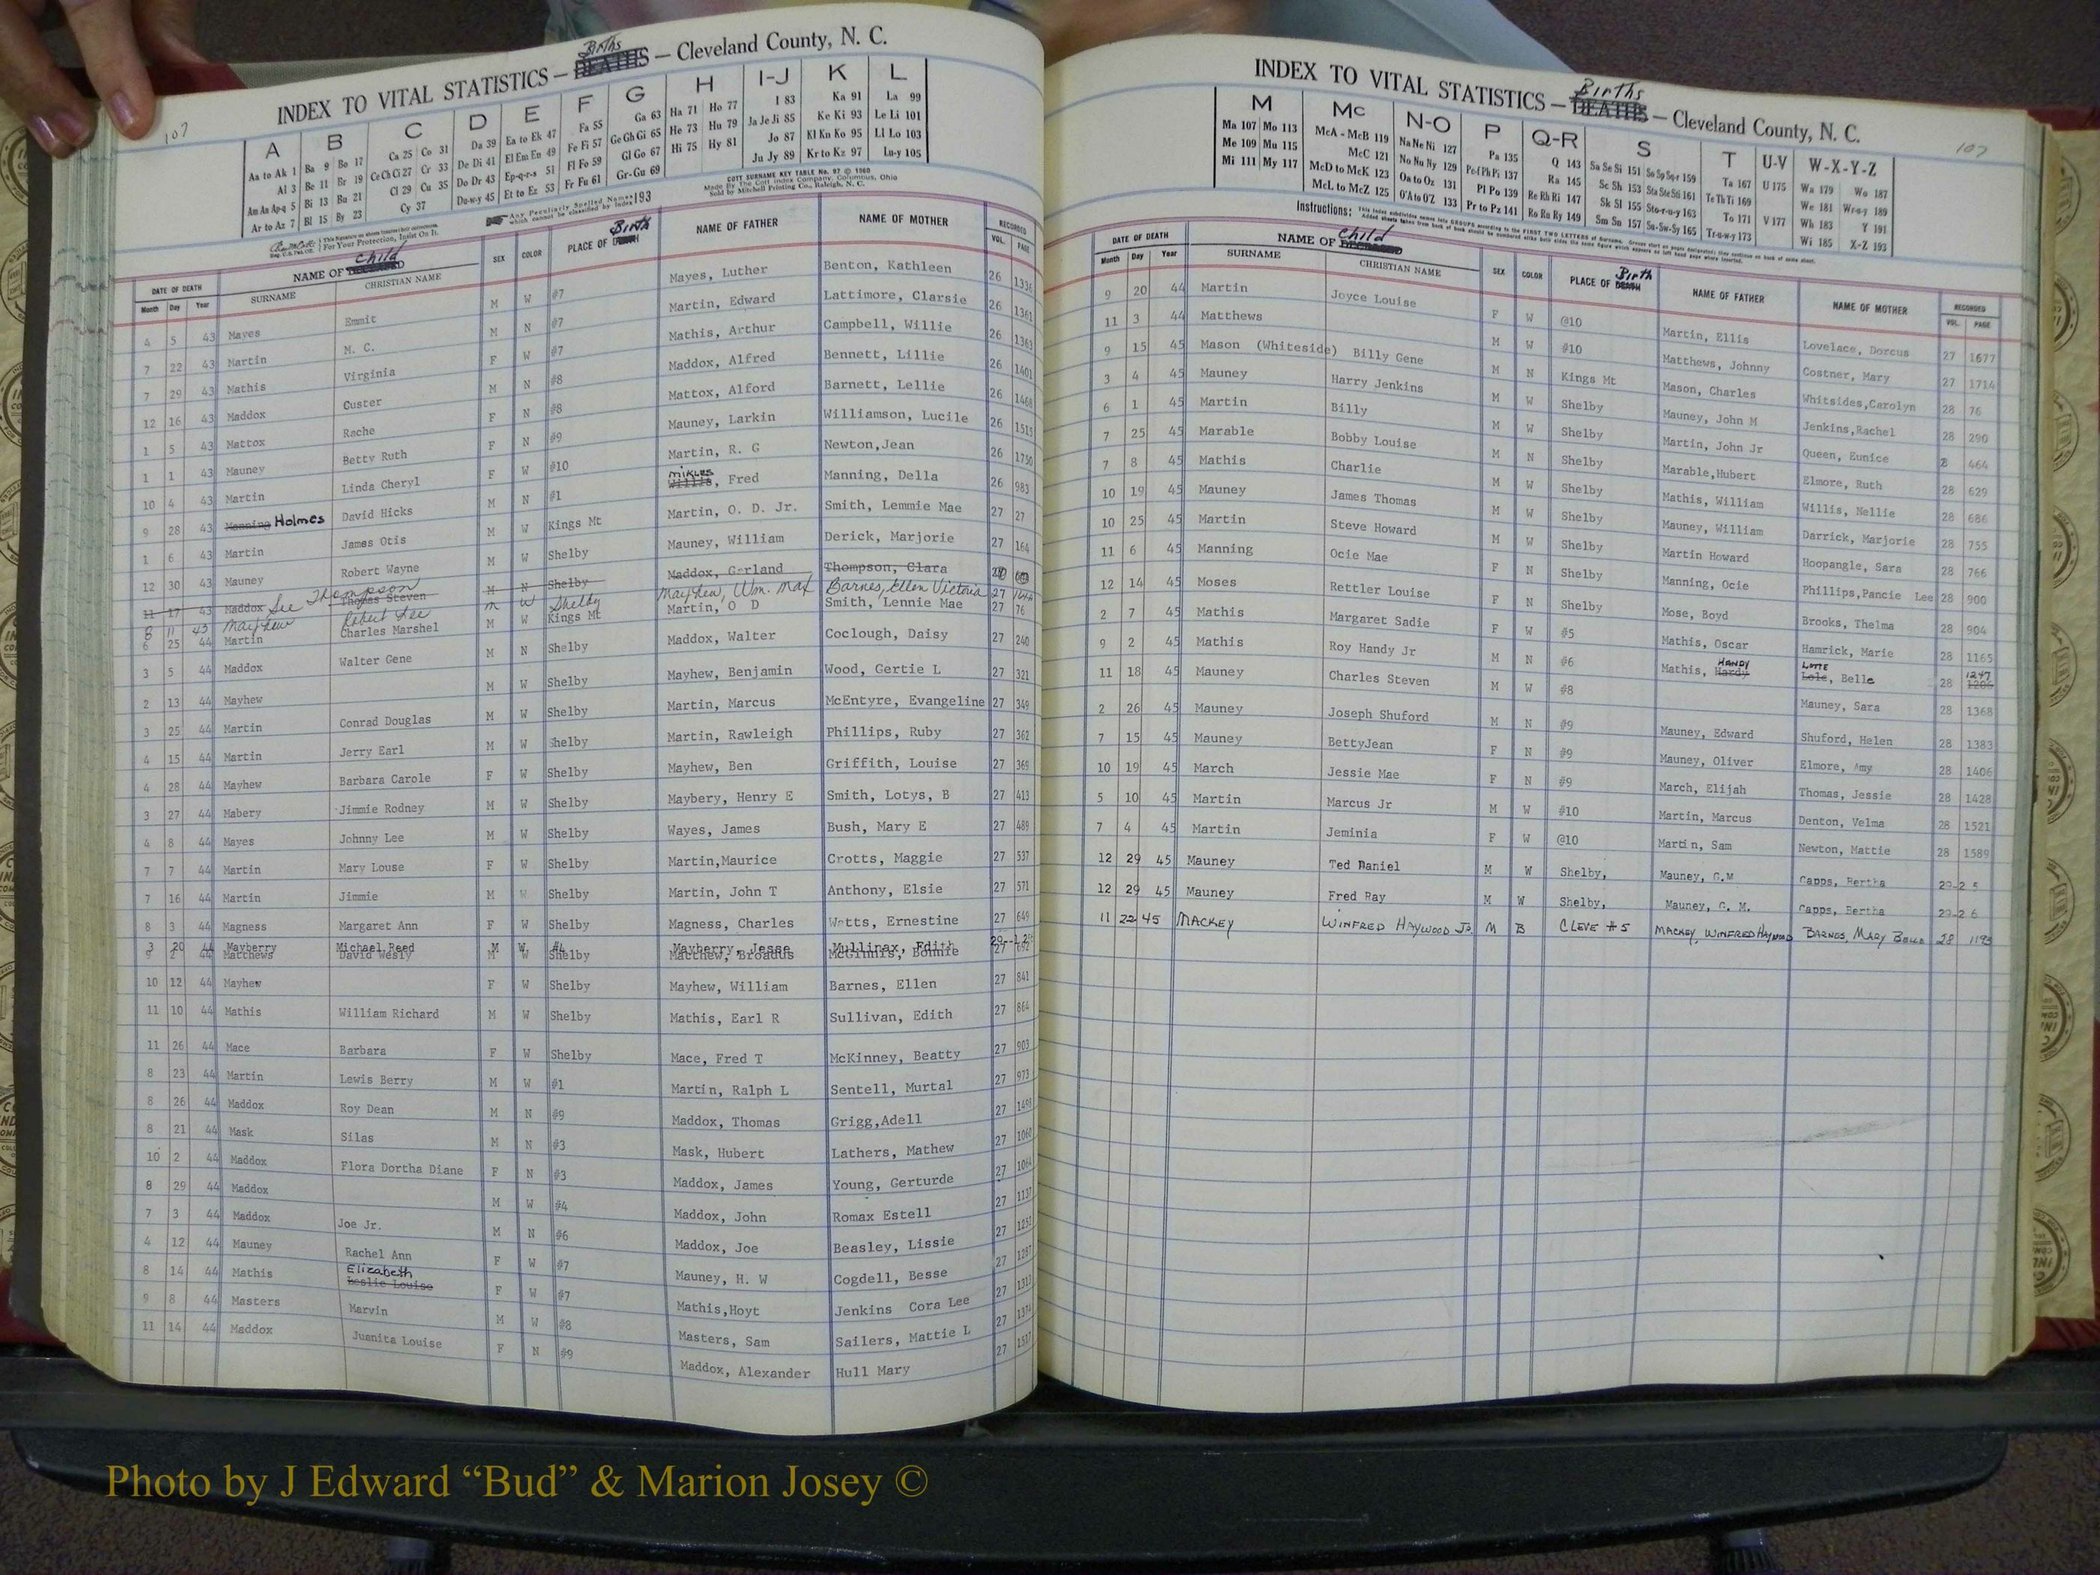 107
INDEX TO VITAL STATISTICS — Births DEATHS — Cleveland County, N. C.
A B C D E F G H I-J K L
Aa to Ak 1 Ba 9 Bo 17 Ca 25 Co 31 Da 39 Ea to Ek 47 Fa 55 Ga 63 Ha 71 Ho 77 I 83 Ka 91 La 99
Al 3 Be 11 Br 19 Ce Ch Ci 27 Cr 33 De Di 41 El Em En 49 Fe Fi 57 Ge Gh Gi 65 He 73 Hu 79 Ja Je Ji 85 Ke Ki 93 Le Li 101
Am An Ap-q 5 Bi 13 Bu 21 Cl 29 Cu 35 Do Dr 43 Ep-q-r-s 51 Fl Fo 59 Gl Go 67 Hi 75 Hy 81 Jo 87 Kl Kn Ko 95 Ll Lo 103
Ar to Az 7 Bl 15 By 23 Cy 37 Du-w-y 45 Et to Ez 53 Fr Fu 61 Gr-Gu 69 Ju Jy 89 Kr to Kz 97 Lu-y 105
Any Peculiarly Spelled Names which cannot be classified by Index 193
COTT SURNAME KEY TABLE No. 97 © 1960
Made By The Cott Index Company, Columbus, Ohio
Sold by Mitchell Printing Co., Raleigh, N. C.
For Your Protection, Insist On It.
DATE OF DEATH NAME OF Child DECEASED SEX COLOR PLACE OF Birth DEATH NAME OF FATHER NAME OF MOTHER RECORDED
Month Day Year SURNAME CHRISTIAN NAME VOL. PAGE
4 5 43 Mayes Emmit M W #7 Mayes, Luther Benton, Kathleen 26 1336
7 22 43 Martin M. C. M N #7 Martin, Edward Lattimore, Clarsie 26 1361
7 29 43 Mathis Virginia F W #7 Mathis, Arthur Campbell, Willie 26 1363
12 16 43 Maddox Guster M N #8 Maddox, Alfred Bennett, Lillie 26 1401
1 5 43 Mattox Rache F N #8 Mattox, Alford Barnett, Lellie 26 1468
1 1 43 Mauney Betty Ruth F N #9 Mauney, Larkin Williamson, Lucile 26 1515
10 4 43 Martin Linda Cheryl F W #10 Martin, R. G Newton,Jean 26 1750
9 28 43 Manning Holmes David Hicks M N #1 Mikles Willis, Fred Manning, Della 26 983
1 6 43 Martin James Otis M W Kings Mt Martin, O. D. Jr. Smith, Lemmie Mae 27 27
12 30 43 Mauney Robert Wayne M W Shelby Mauney, William Derick, Marjorie 27 164
11 17 43 Maddox See Thompson Thomas Steven M N Shelby Maddox, Gerland Thompson, Clara
8 11 43 Mayhew Robert Lee M W Shelby Mayhew, Wm. Max Barnes, Ellen Victoria 27
6 25 44 Martin Charles Marshel M W Kings Mt Martin, O D Smith, Lennie Mae 27 76
3 5 44 Maddox Walter Gene M N Shelby Maddox, Walter Coclough, Daisy 27 240
2 13 44 Mayhew M W Shelby Mayhew, Benjamin Wood, Gertie L 27 321
3 25 44 Martin Conrad Douglas M W Shelby Martin, Marcus McEntyre, Evangeline 27 349
4 15 44 Martin Jerry Earl M W Shelby Martin, Rawleigh Phillips, Ruby 27 362
4 28 44 Mayhew Barbara Carole F W Shelby Mayhew, Ben Griffith, Louise 27 369
3 27 44 Mabery Jimmie Rodney M W Shelby Maybery, Henry E Smith, Lotys, B 27 413
4 8 44 Mayes Johnny Lee M W Shelby Wayes, James Bush, Mary E 27 489
7 7 44 Martin Mary Louse F W Shelby Martin,Maurice Crotts, Maggie 27 537
7 16 44 Martin Jimmie M W Shelby Martin, John T Anthony, Elsie 27 571
8 3 44 Magness Margaret Ann F W Shelby Magness, Charles Watts, Ernestine 27 649
3 20 44 Mayberry Michael Reed M W #4 Mayberry, Jesse Mullinax, Edith
9 2 44 Matthews David Wesly M W Shelby Matthew, Broadus McGinnis, Bonnie 27 692
10 12 44 Mayhew F W Shelby Mayhew, William Barnes, Ellen 27 841
11 10 44 Mathis William Richard M W Shelby Mathis, Earl R Sullivan, Edith 27 864
11 26 44 Mace Barbara F W Shelby Mace, Fred T McKinney, Beatty 27 903
8 23 44 Martin Lewis Berry M W #1 Martin, Ralph L Sentell, Murtal 27 973
8 26 44 Maddox Roy Dean M N #9 Maddox, Thomas Grigg,Adell 27 1498
8 21 44 Mask Silas M N #3 Mask, Hubert Lathers, Mathew 27 1060
10 2 44 Maddox Flora Dortha Diane F N #3 Maddox, James Young, Gerturde 27 1064
8 29 44 Maddox M W #4 Maddox, John Romax Estell 27 1137
7 3 44 Maddox Joe Jr. M N #6 Maddox, Joe Beasley, Lissie 27 1252
4 12 44 Mauney Rachel Ann F W #7 Mauney, H. W Cogdell, Besse 27 1287
8 14 44 Mathis Elizabeth Leslie Louise F W #7 Mathis,Hoyt Jenkins Cora Lee 27 1313
9 8 44 Masters Marvin M W #8 Masters, Sam Sailers, Mattie L 27 1374
11 14 44 Maddox Juanita Louise F N #9 Maddox, Alexander Hull Mary 27 1517
107
INDEX TO VITAL STATISTICS — Births DEATHS — Cleveland County, N. C.
M Mc N-O P Q-R S T U-V W-X-Y-Z
Ma 107 Mo 113 McA - McB 119 Na Ne Ni 127 Pa 135 Q 143 Sa Se Si 151 So Sp Sq-r 159 Ta 167 U 175 Wa 179 Wo 187
Me 109 Mu 115 McC 121 No Nu Ny 129 Pe-f Ph Pi 137 Ra 145 Sc Sh 153 Sta Ste Sti 161 Te Th Ti 169 We 181 Wr-u-y 189
Mi 111 My 117 McD to McK 123 Oa to Oz 131 Pl Po 139 Re Rh Ri 147 Sk Sl 155 Sto-r-u-y 163 To 171 V 177 Wh 183 Y 191
McL to McZ 125 O'A to O'Z 133 Pr to Pz 141 Ro Ru Ry 149 Sm Sn 157 Su-Sw-Sy 165 Tr-u-w-y 173 Wi 185 X-Z 193
Instructions:
DATE OF DEATH NAME OF Child DECEASED SEX COLOR PLACE OF Birth DEATH NAME OF FATHER NAME OF MOTHER RECORDED
Month Day Year SURNAME CHRISTIAN NAME VOL. PAGE
9 20 44 Martin Joyce Louise F W @10 Martin, Ellis Lovelace, Dorcus 27 1677
11 3 44 Matthews M W #10 Matthews, Johnny Costner, Mary 27 1714
9 15 45 Mason (Whiteside) Billy Gene M N Kings Mt Mason, Charles Whitsides,Carolyn 28 76
3 4 45 Mauney Harry Jenkins M W Shelby Mauney, John M Jenkins,Rachel 28 290
6 1 45 Martin Billy M W Shelby Martin, John Jr Queen, Eunice 464
7 25 45 Marable Bobby Louise M N Shelby Marable,Hubert Elmore, Ruth 28 629
7 8 45 Mathis Charlie M W Shelby Mathis, William Willis, Nellie 28 686
10 19 45 Mauney James Thomas M W Shelby Mauney, William Darrick, Marjorie 28 755
10 25 45 Martin Steve Howard M W Shelby Martin Howard Hoopangle, Sara 28 766
11 6 45 Manning Ocie Mae F N Shelby Manning, Ocie Phillips,Pancie Lee 28 900
12 14 45 Moses Rettler Louise F N Shelby Mose, Boyd Brooks, Thelma 28 904
2 7 45 Mathis Margaret Sadie F W #5 Mathis, Oscar Hamrick, Marie 28 1165
9 2 45 Mathis Roy Handy Jr M N #6 Mathis, HANDY Hardy LOTTE Lole, Belle 28 1247
11 18 45 Mauney Charles Steven M W #8 Mauney, Sara 28 1368
2 26 45 Mauney Joseph Shuford M N #9 Mauney, Edward Shuford, Helen 28 1383
7 15 45 Mauney BettyJean F N #9 Mauney, Oliver Elmore, Amy 28 1406
10 19 45 March Jessie Mae F N #9 March, Elijah Thomas, Jessie 28 1428
5 10 45 Martin Marcus Jr M W #10 Martin, Marcus Denton, Velma 28 1521
7 4 45 Martin Jeminia F W @10 Martin, Sam Newton, Mattie 28 1589
12 29 45 Mauney Ted Daniel M W Shelby, Mauney, G.M Capps, Bertha 29-2 5
12 29 45 Mauney Fred Ray M W Shelby, Mauney, G. M. Capps, Bertha 29-2 6
11 22 45 MACKEY WINFRED HAYWOOD Jr. M B CLEVE #5 MACKEY, WINFRED HAYWOOD BARNES, MARY BELLE 28 1193
Photo by J Edward “Bud” & Marion Josey ©